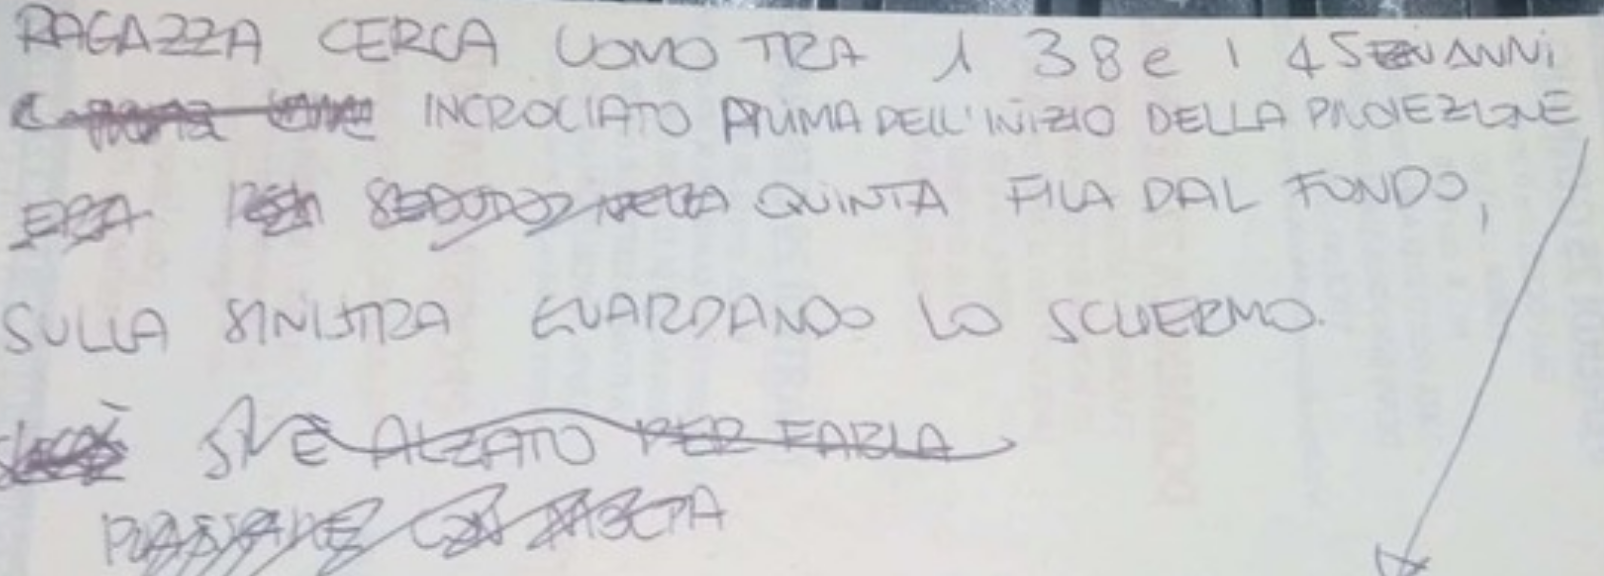 RAGAZZA CERCA UOMO TRA I 38 e I 45 ANNI
INCROCIATO PRIMA DELL'INIZIO DELLA PROIEZIONE
ERA SEDUTO NELLA QUINTA FILA DAL FONDO,
SULLA SINISTRA GUARDANDO LO SCHERMO.
SI È ALZATO PER FARLA
PASSARE